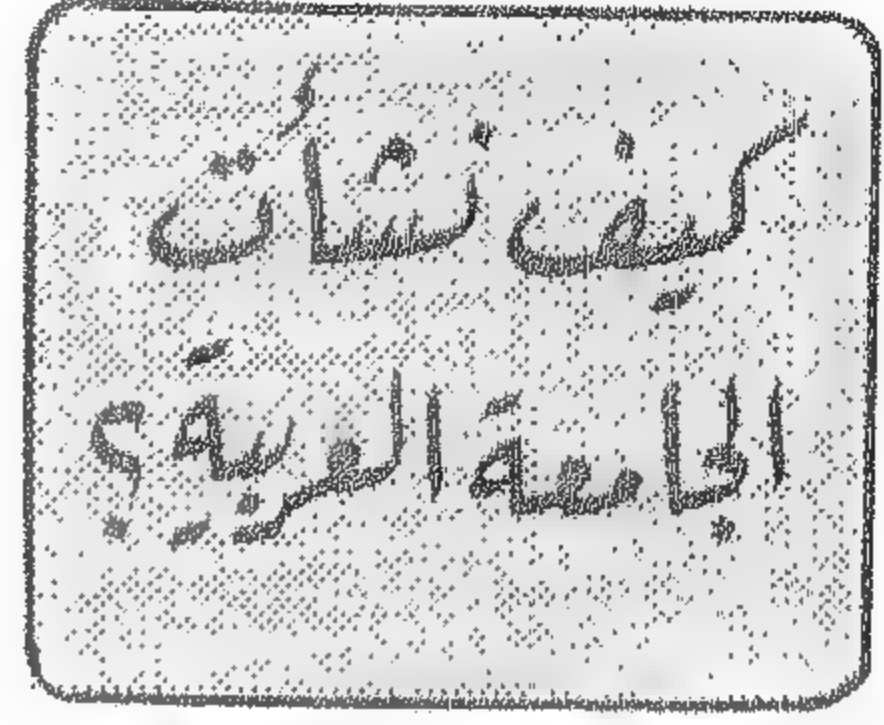 كيف نشأت
الجامعة العربية؟